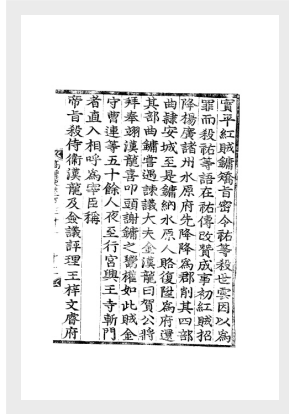 實平紅賊鏞矯旨密令祐等殺世雲因以爲
罪而殺祐等語在祐傳改贊成事初紅賊招
降楊廣諸州水原府先降降爲郡削其四部
曲隷安城至是鏞納水原人賂復陞爲府還
其部曲鏞嘗遇諫議大夫金漢龍曰賀公將
拜奉翊漢龍喜叩頭謝鏞之鬻權如此賊金
守曹連等五十餘人夜至行宮興王寺斬門
者直入相呼爲宰臣稱
帝旨殺侍衞漢龍及僉議評理王梓文睿府